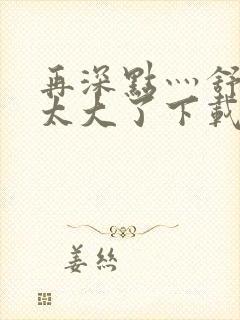 再深點灬舒
太大了下載
姜絲